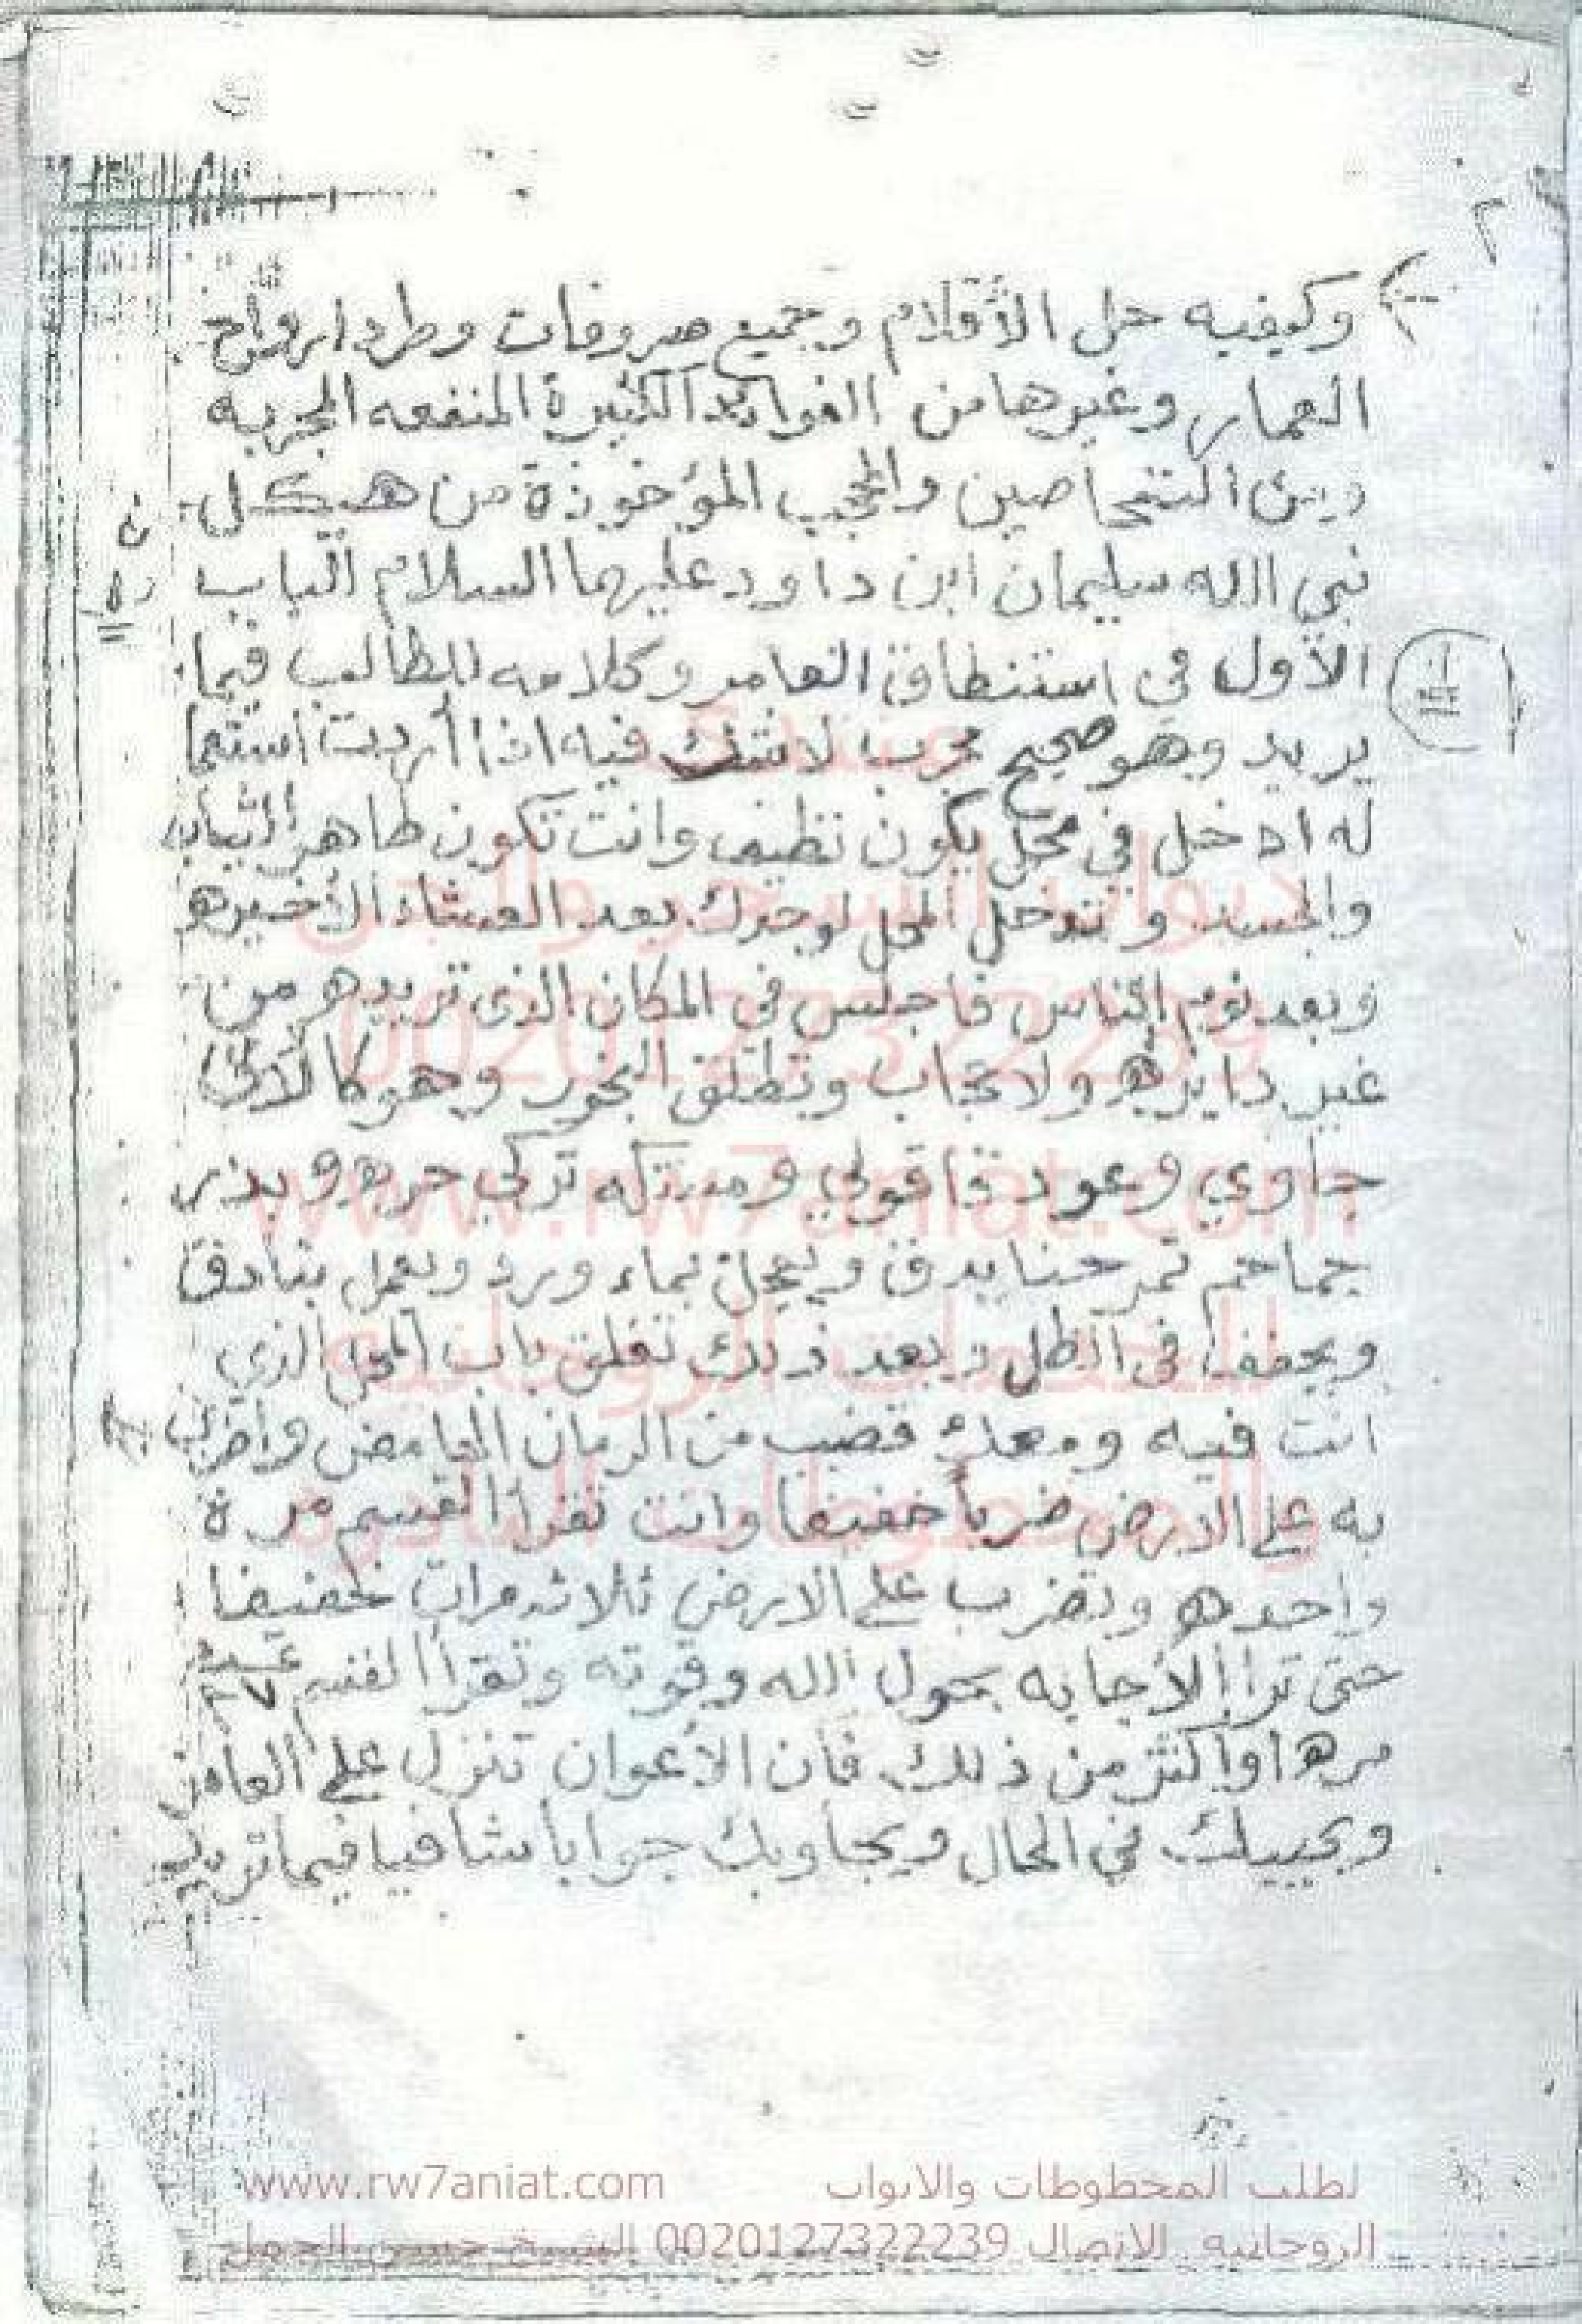 وكيفيه حل الأقلام وجميع صروفات وطرد ارواح
العمار وغيرها من الفوائد الكثيرة المنفعه المجربه
التحاصين والحجب المؤخوذة من هيكل
نبي الله سليمان ابن داود عليهما السلام الباب
الأول في استنطاق العامر وكلامه للطالب فيما
يريد وهو صحيح مجرب لا شك فيه اذا أردت استعما
له ادخل في محل يكون نظيف وانت تكون طاهر الثياب
والجسد وتدخل المحل لوحدك بعد العشاء الأخيره
وبعد نوم الناس فاجلس في المكان الذي تريده من
غير دايره ولا حجاب وتطلق البخور وهو كالاتى
جاوي وعود قاقولي ومستكه تركى حره وبذر
تمر حنا يدق ويعجن بماء ورد ويعمل بنادق
ويجففه في الظل وبعد ذلك تغلق باب المحل الذي
انت فيه ومعك قضيب من الرمان الحامض واضرب
به على الارض ضرباً خفيفا وانت تقرأ القسم مرة
واحده وتضرب على الارض ثلاث مرات خفيفا
حتى ترا الأجابه بحول الله وقوته وتقرأ القسم
مره أو اكثر من ذلك فأن الأعوان تنزل على العامر
ويجيبك في الحال ويجاوبك جواباً شافيا فيما تريد
ديوان السحر والجن
0020127322239
www.rw7aniat.com
للخدمات الروحانيه
www.rw7aniat.com لطلب المخطوطات والابواب
الروحانيه الاتصال 0020127322239 الشيخ حسن الجمل